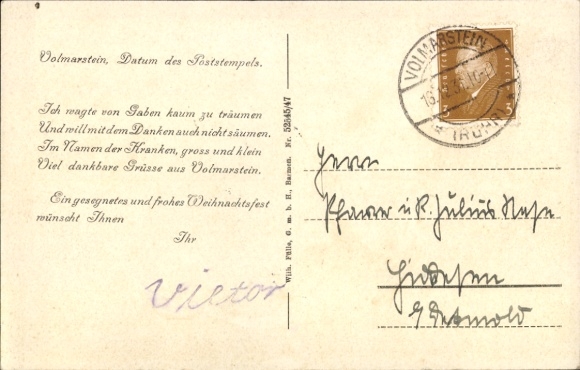 Volmarstein, Datum des Poststempels.
Ich wagte von Gaben kaum zu träumen
Und will mit dem Danken auch nicht säumen.
Im Namen der Kranken, gross und klein
Viel dankbare Grüsse aus Volmarstein.
Ein gesegnetes und frohes Weihnachtsfest
wünscht Ihnen
Ihr
Victor
Wilh. Fülle, G. m. b. H., Barmen. Nr. 52645/47
VOLMARSTEIN
(RUHR)
Herrn
Pfarrer i. R. Julius
Hiddesen
Detmold